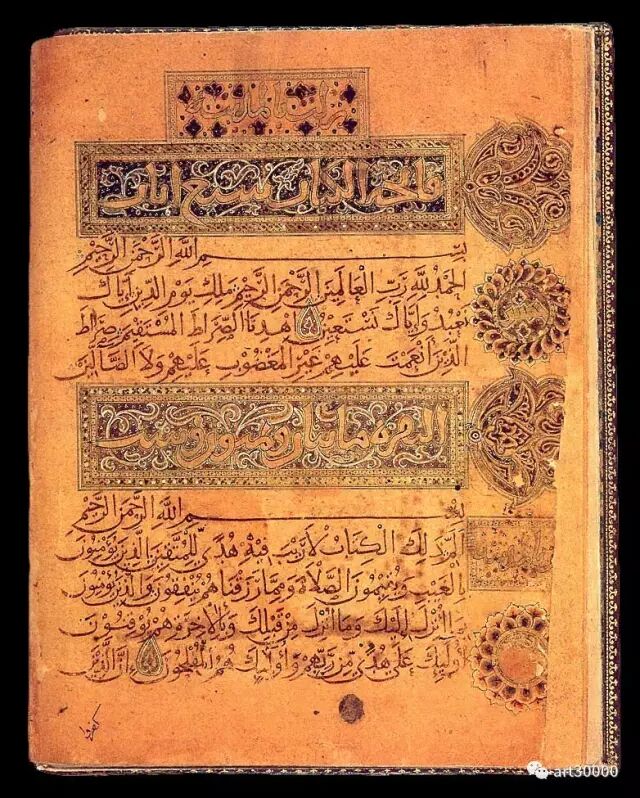 فاتحة الكتاب سبع ايات
بسم الله الرحمن الرحيم
الحمد لله رب العالمين الرحمن الرحيم ملك يوم الدين اياك
نعبد واياك نستعين اهدنا الصراط المستقيم صراط
الذين انعمت عليهم غير المغضوب عليهم ولا الضالين
البقرة مايتان وثمنون وست
بسم الله الرحمن الرحيم
الم ذلك الكتاب لا ريب فيه هدى للمتقين الذين يومنون
بالغيب ويقيمون الصلاة ومما رزقناهم ينفقون والذين يومنون
بما انزل اليك وما انزل من قبلك وبالاخرة هم يوقنون
اوليك على هدى من ربهم واوليك هم المفلحون ان الذين
كفروا
art30000